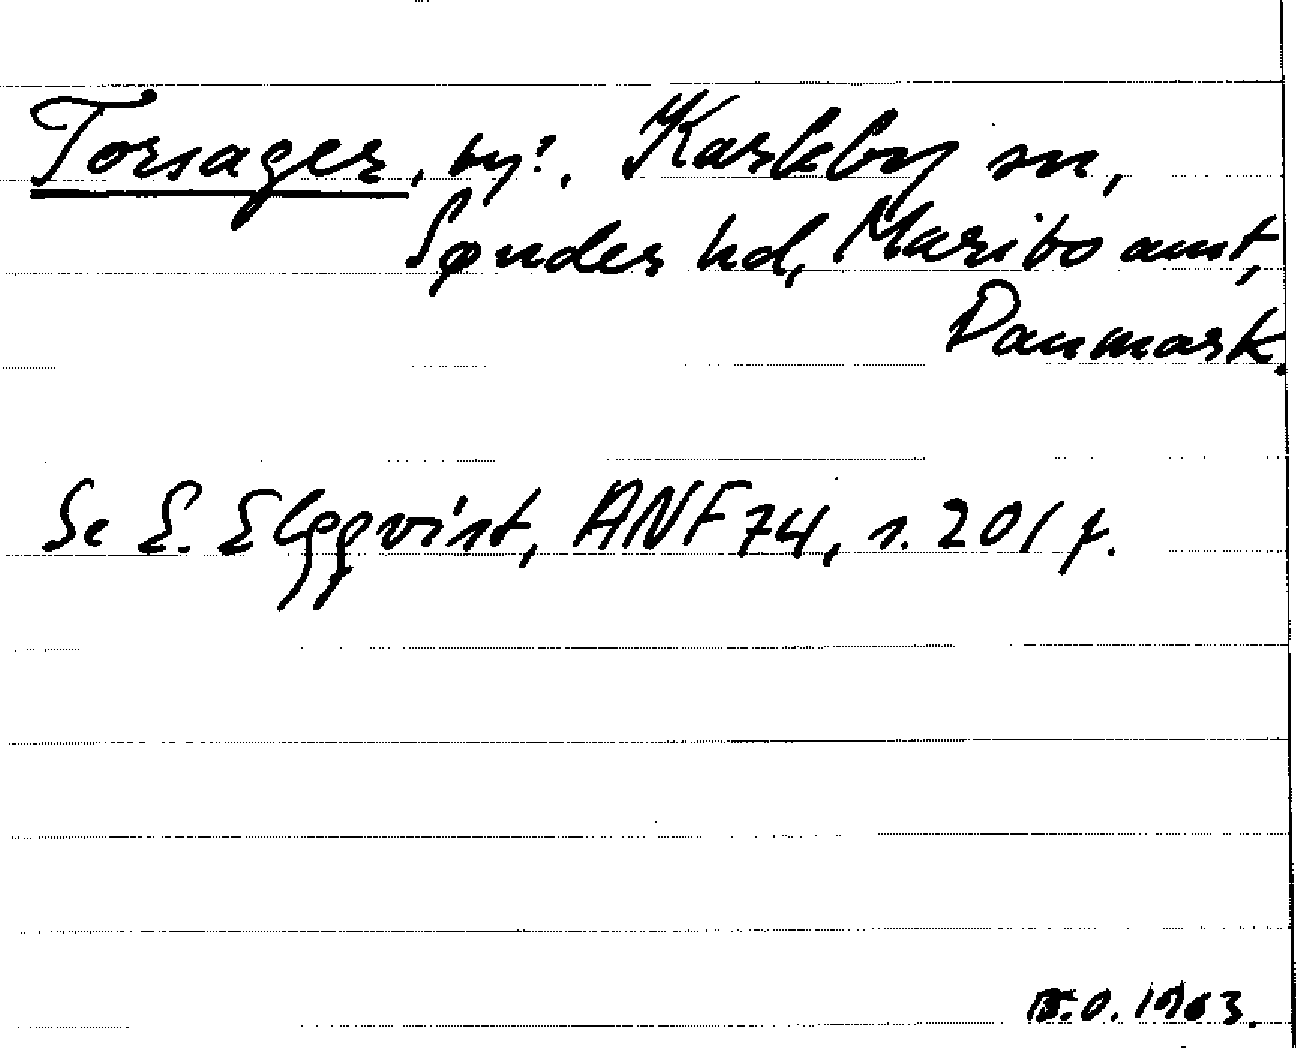 Torsager, by?. Karleby sn,
Sønder hd, Maribo amt,
Danmark.
Se E. Elgqvist, ANF 74, s. 201 f.
B.O. 1963.